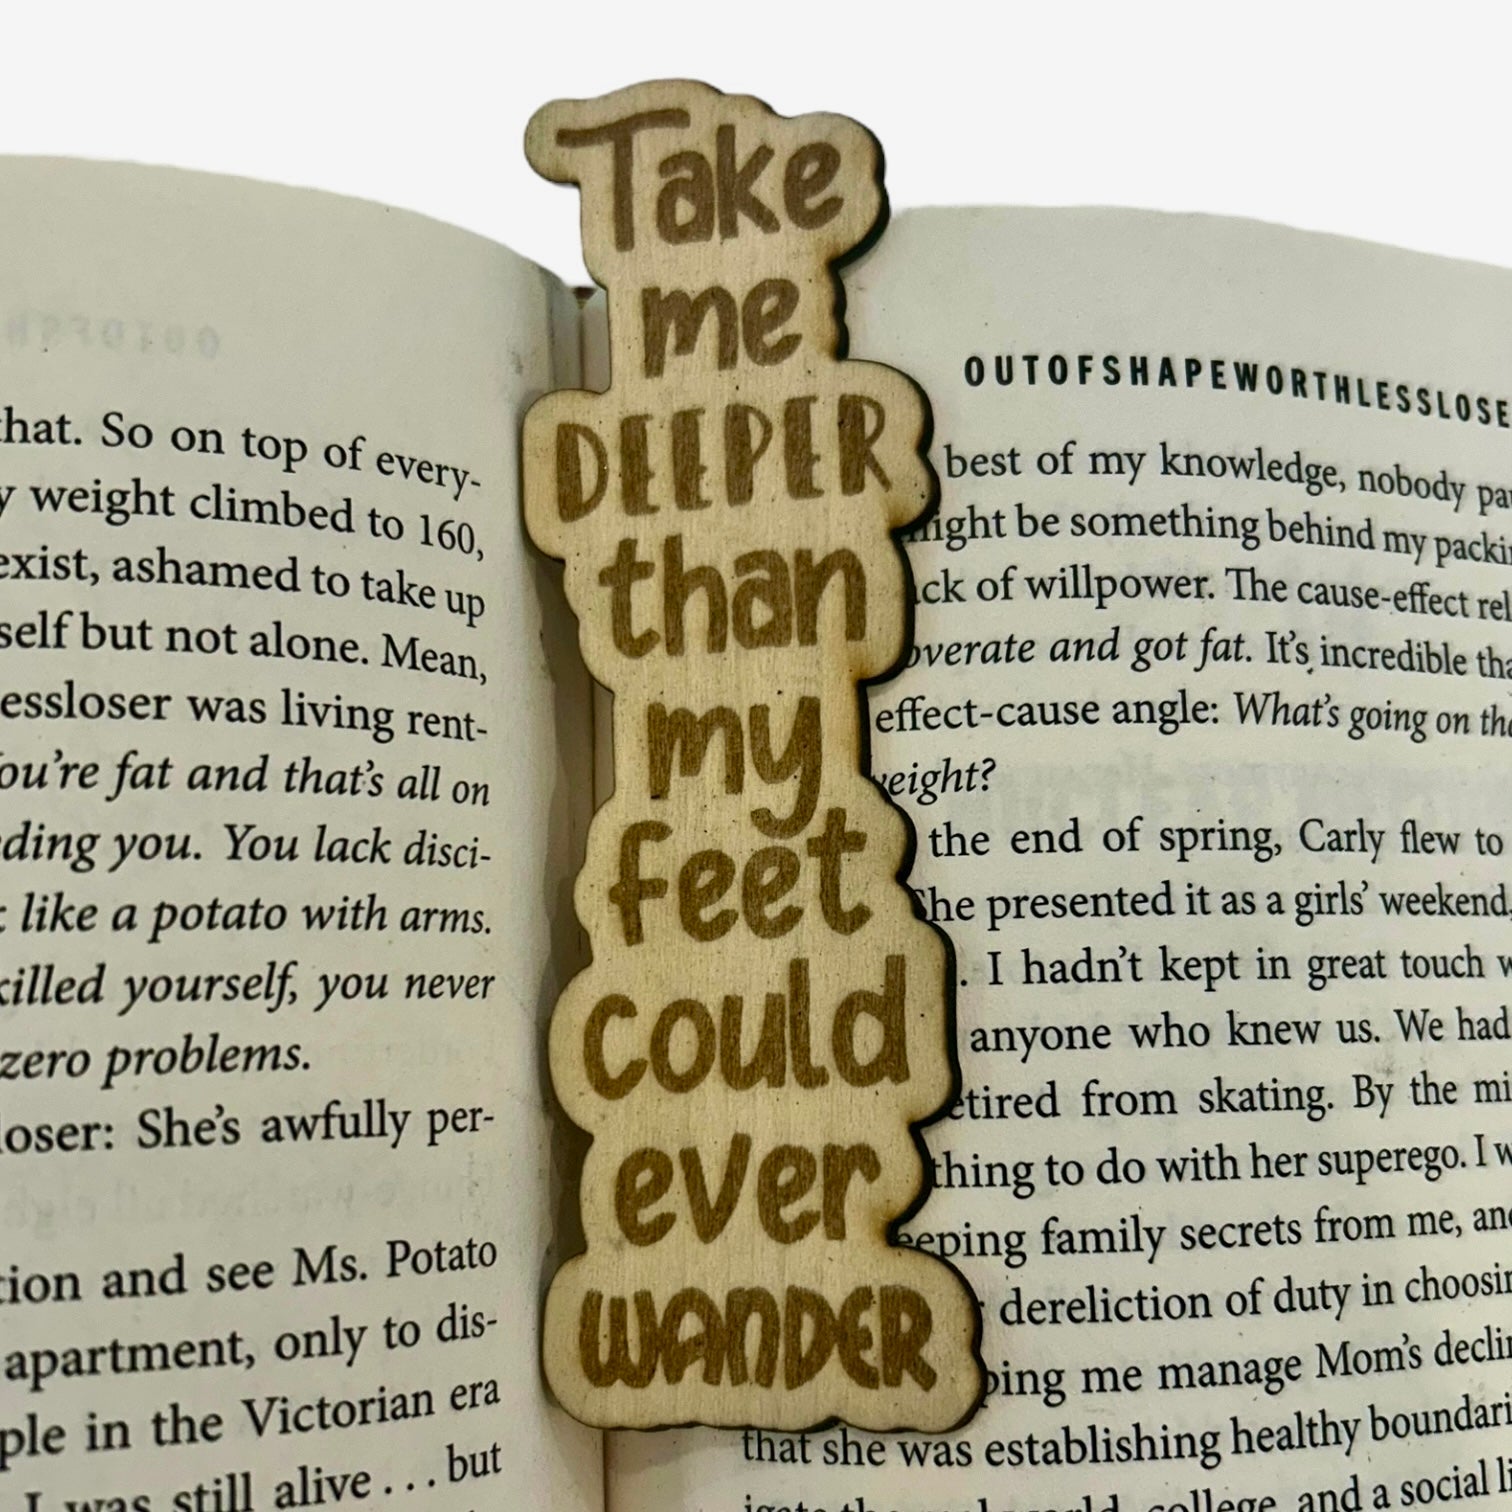 Take
me
DEEPER
than
my
feet
could
ever
WANDER
that. So on top of every-
weight climbed to 160,
exist, ashamed to take up
self but not alone. Mean,
essloser was living rent-
You're fat and that's all on
ding you. You lack disci-
like a potato with arms.
killed yourself, you never
zero problems.
loser: She's awfully per-
tion and see Ms. Potato
apartment, only to dis-
ple in the Victorian era
I was still alive . . . but
OUTOFSHAPEWORTHLESSLOSE
best of my knowledge, nobody
might be something behind my packi
ck of willpower. The cause-effect rel
overate and got fat. It's incredible tha
effect-cause angle: What's going on tha
weight?
the end of spring, Carly flew to
She presented it as a girls' weekend,
. I hadn't kept in great touch w
anyone who knew us. We had
etired from skating. By the mi
thing to do with her superego. I w
eeping family secrets from me, and
dereliction of duty in choosin
ping me manage Mom's declin
that she was establishing healthy boundari
college, and a social li